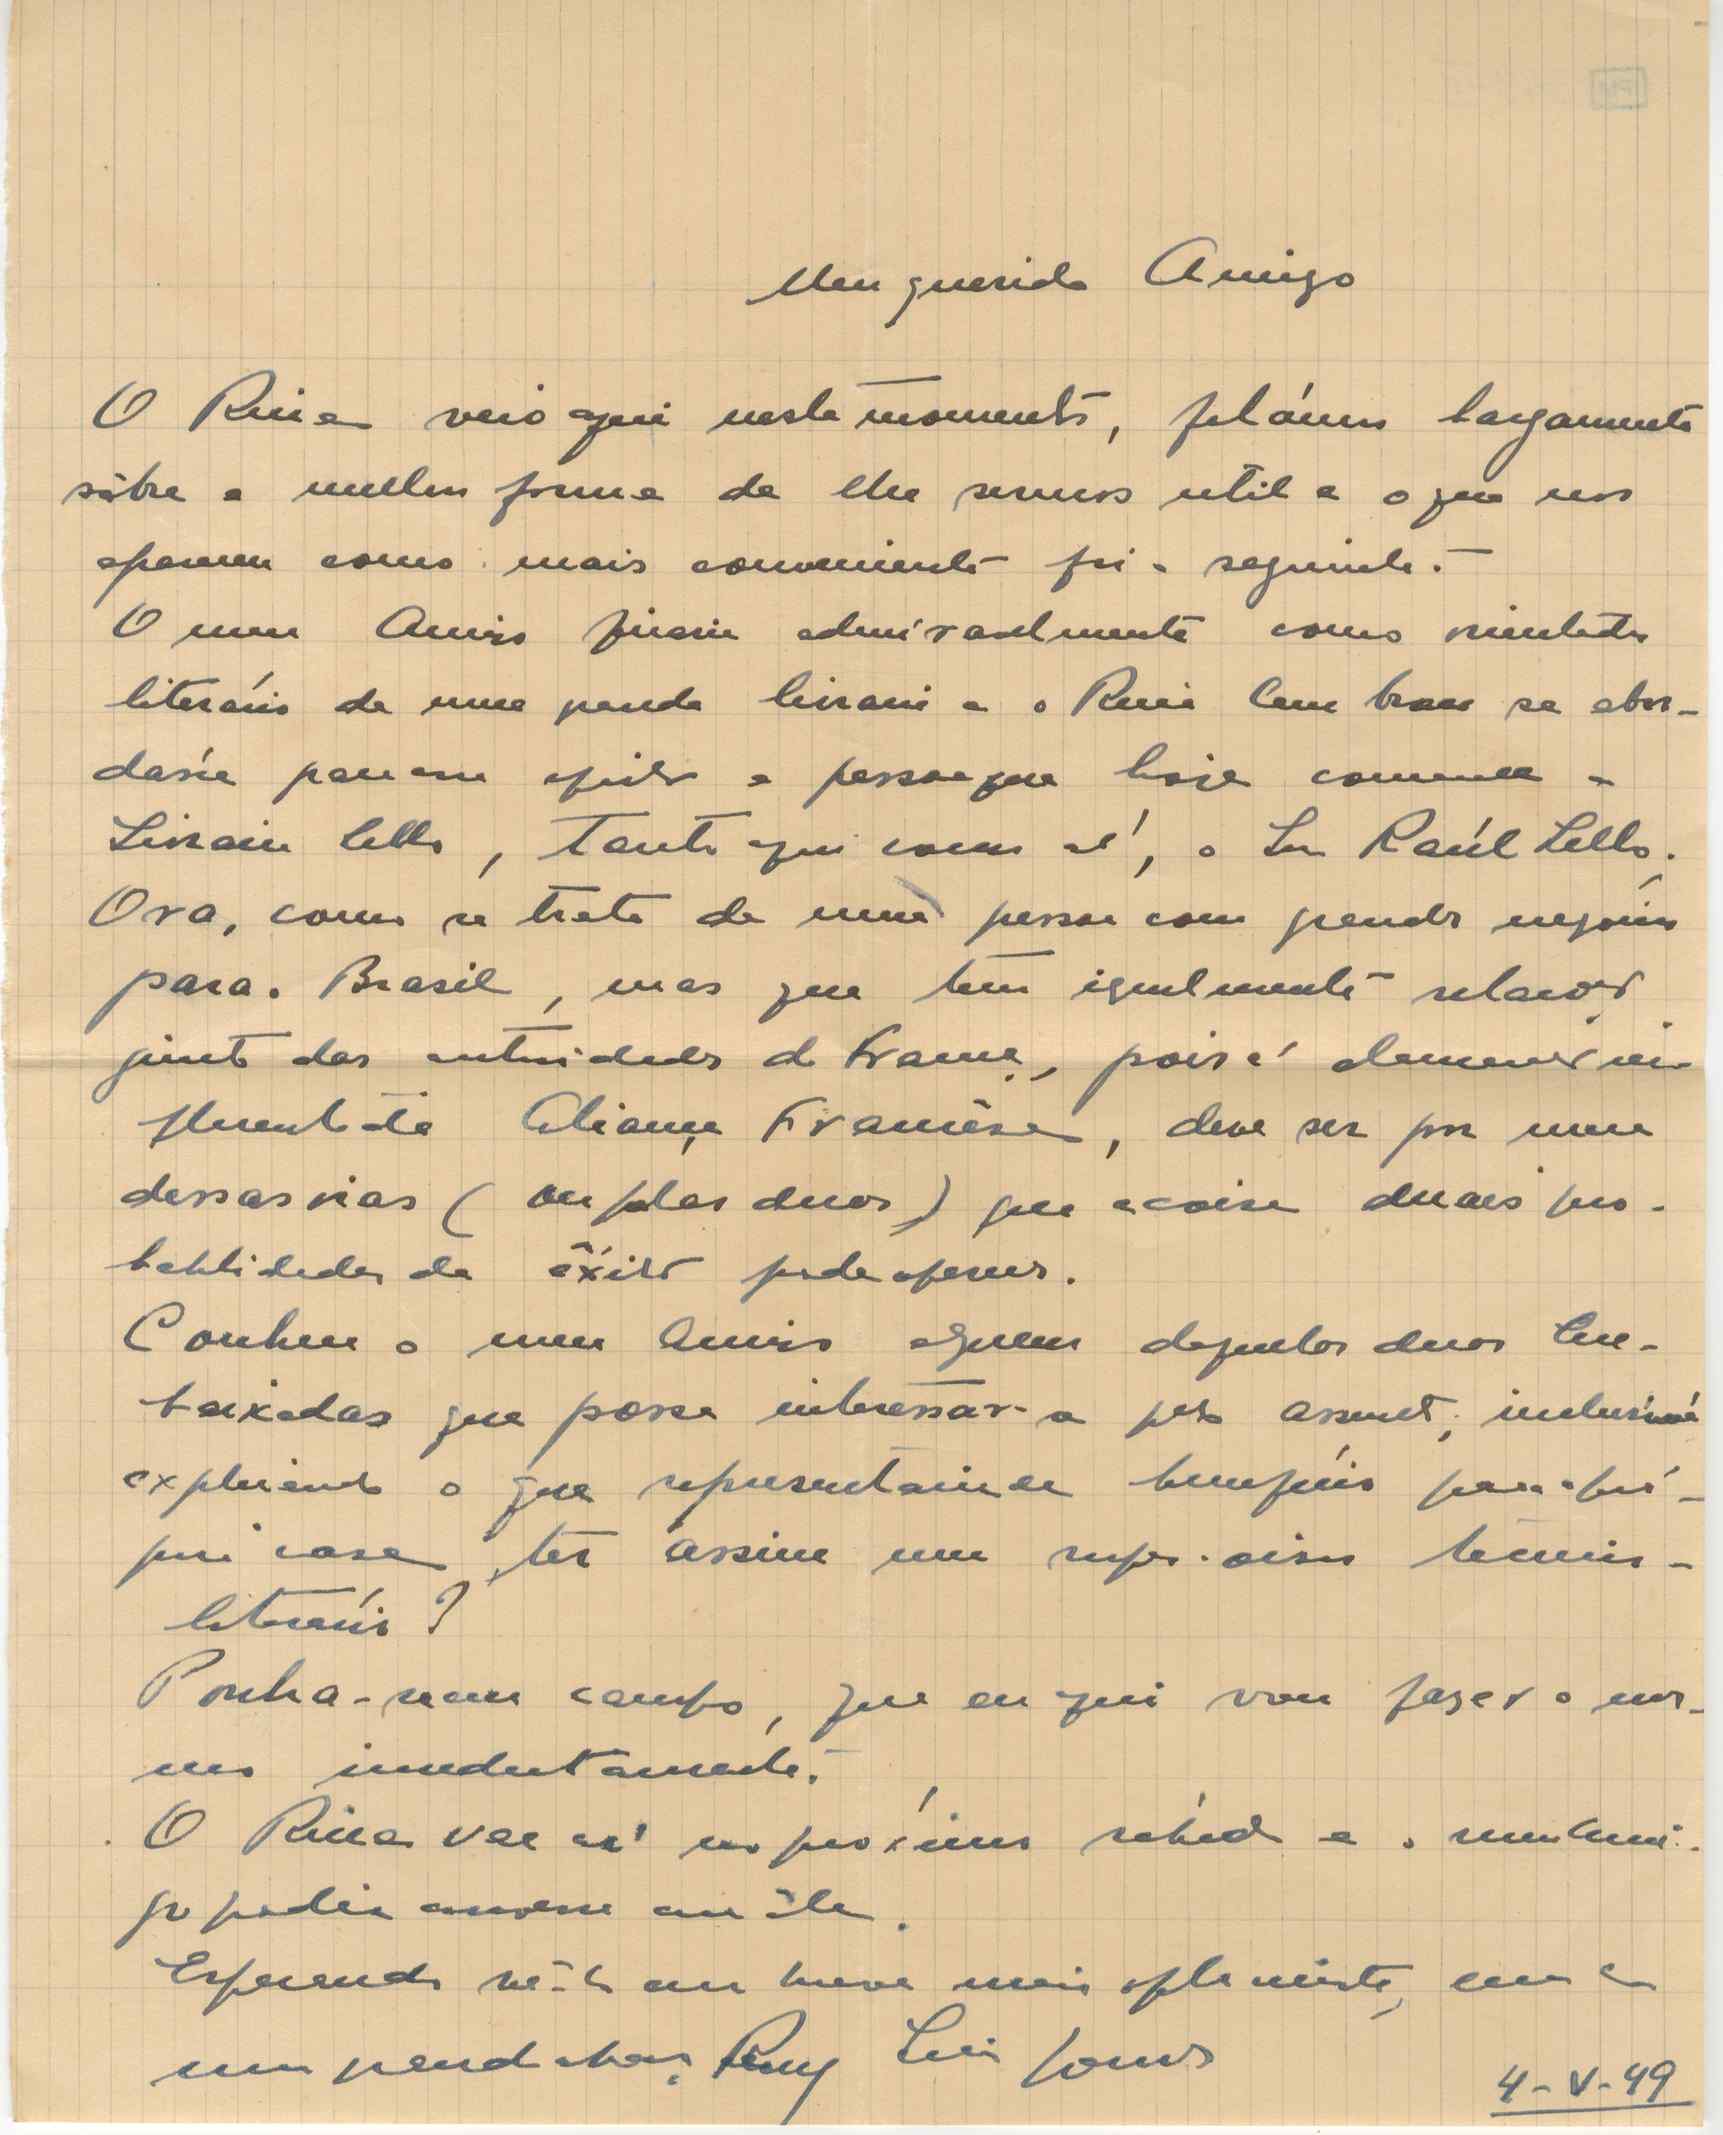 Meu querido Amigo
O Ruia veio aqui neste momento, falámos largamente
sôbre a melhor forma de lhe sermos util e o que nos
apareceu como mais conveniente foi o seguinte:
O meu Amigo ficaria admiravelmente como orientador
literário de uma grande livraria e o Ruia lembrou se abor-
dasse para esse efeito a pessoa que hoje comanda a
Livraria Lello, tanto aqui como aí, o Snr Raúl Lello.
Ora, como se trata de uma pessoa com grandes negócios
para o Brasil, mas que tem igualmente relações
junto das autoridades de França, pois é elemento in-
fluente da Aliança Francêsa, deve ser por uma
dessas vias (ou pelas duas) que a coisa de mais pro-
babilidades de êxito pode oferecer.
Conhece o meu Amigo alguem daquelas duas Em-
baixadas que possa interessar-se pelo assunto, inclusivé
explicando o que representaria de beneficio para a pró-
pria casa ter assim um super-visor tecnico-
literário?
Ponha-se em campo, que eu aqui vou fazer o mes-
mo imediatamente.
O Ruia vae aí no próximo sábado e o meu Ami-
go poderia conversar com êle.
Esperando vê-lo em breve mais optimista, envia
um grande abraço Ruy Luís Gomes
4-V-49